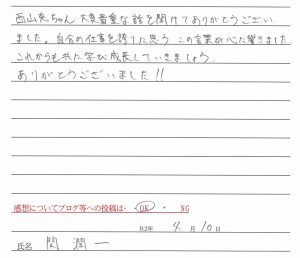 西山英ちゃん 大変貴重な話を聞けてありがとうござい
ました。自分の仕事を誇りに思う この言葉が心に響きました
これからも共に学び成長していきましょう。
ありがとうございました!!
感想についてブログ等への投稿は・ OK ・ NG
R2年 4月10日
氏名 関 潤一